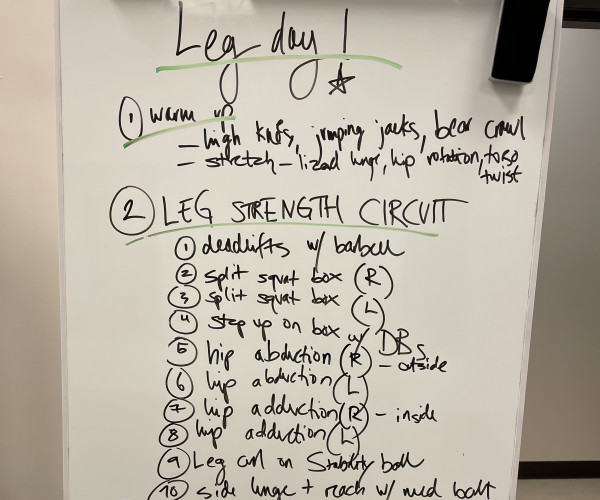 Leg day !
① warm up
— high knees, jumping jacks, bear crawl
— stretch – lizard lunge, hip rotation, torso
twist
② LEG STRENGTH CIRCUIT
① deadlifts w/ barbell
② split squat box (R)
③ split squat box (L)
④ step up on box w/ DBs
⑤ hip abduction (R) – outside
⑥ hip abduction (L)
⑦ hip adduction (R) – inside
⑧ hip adduction (L)
⑨ Leg curl on Stability ball
⑩ side lunge + reach w/ med ball